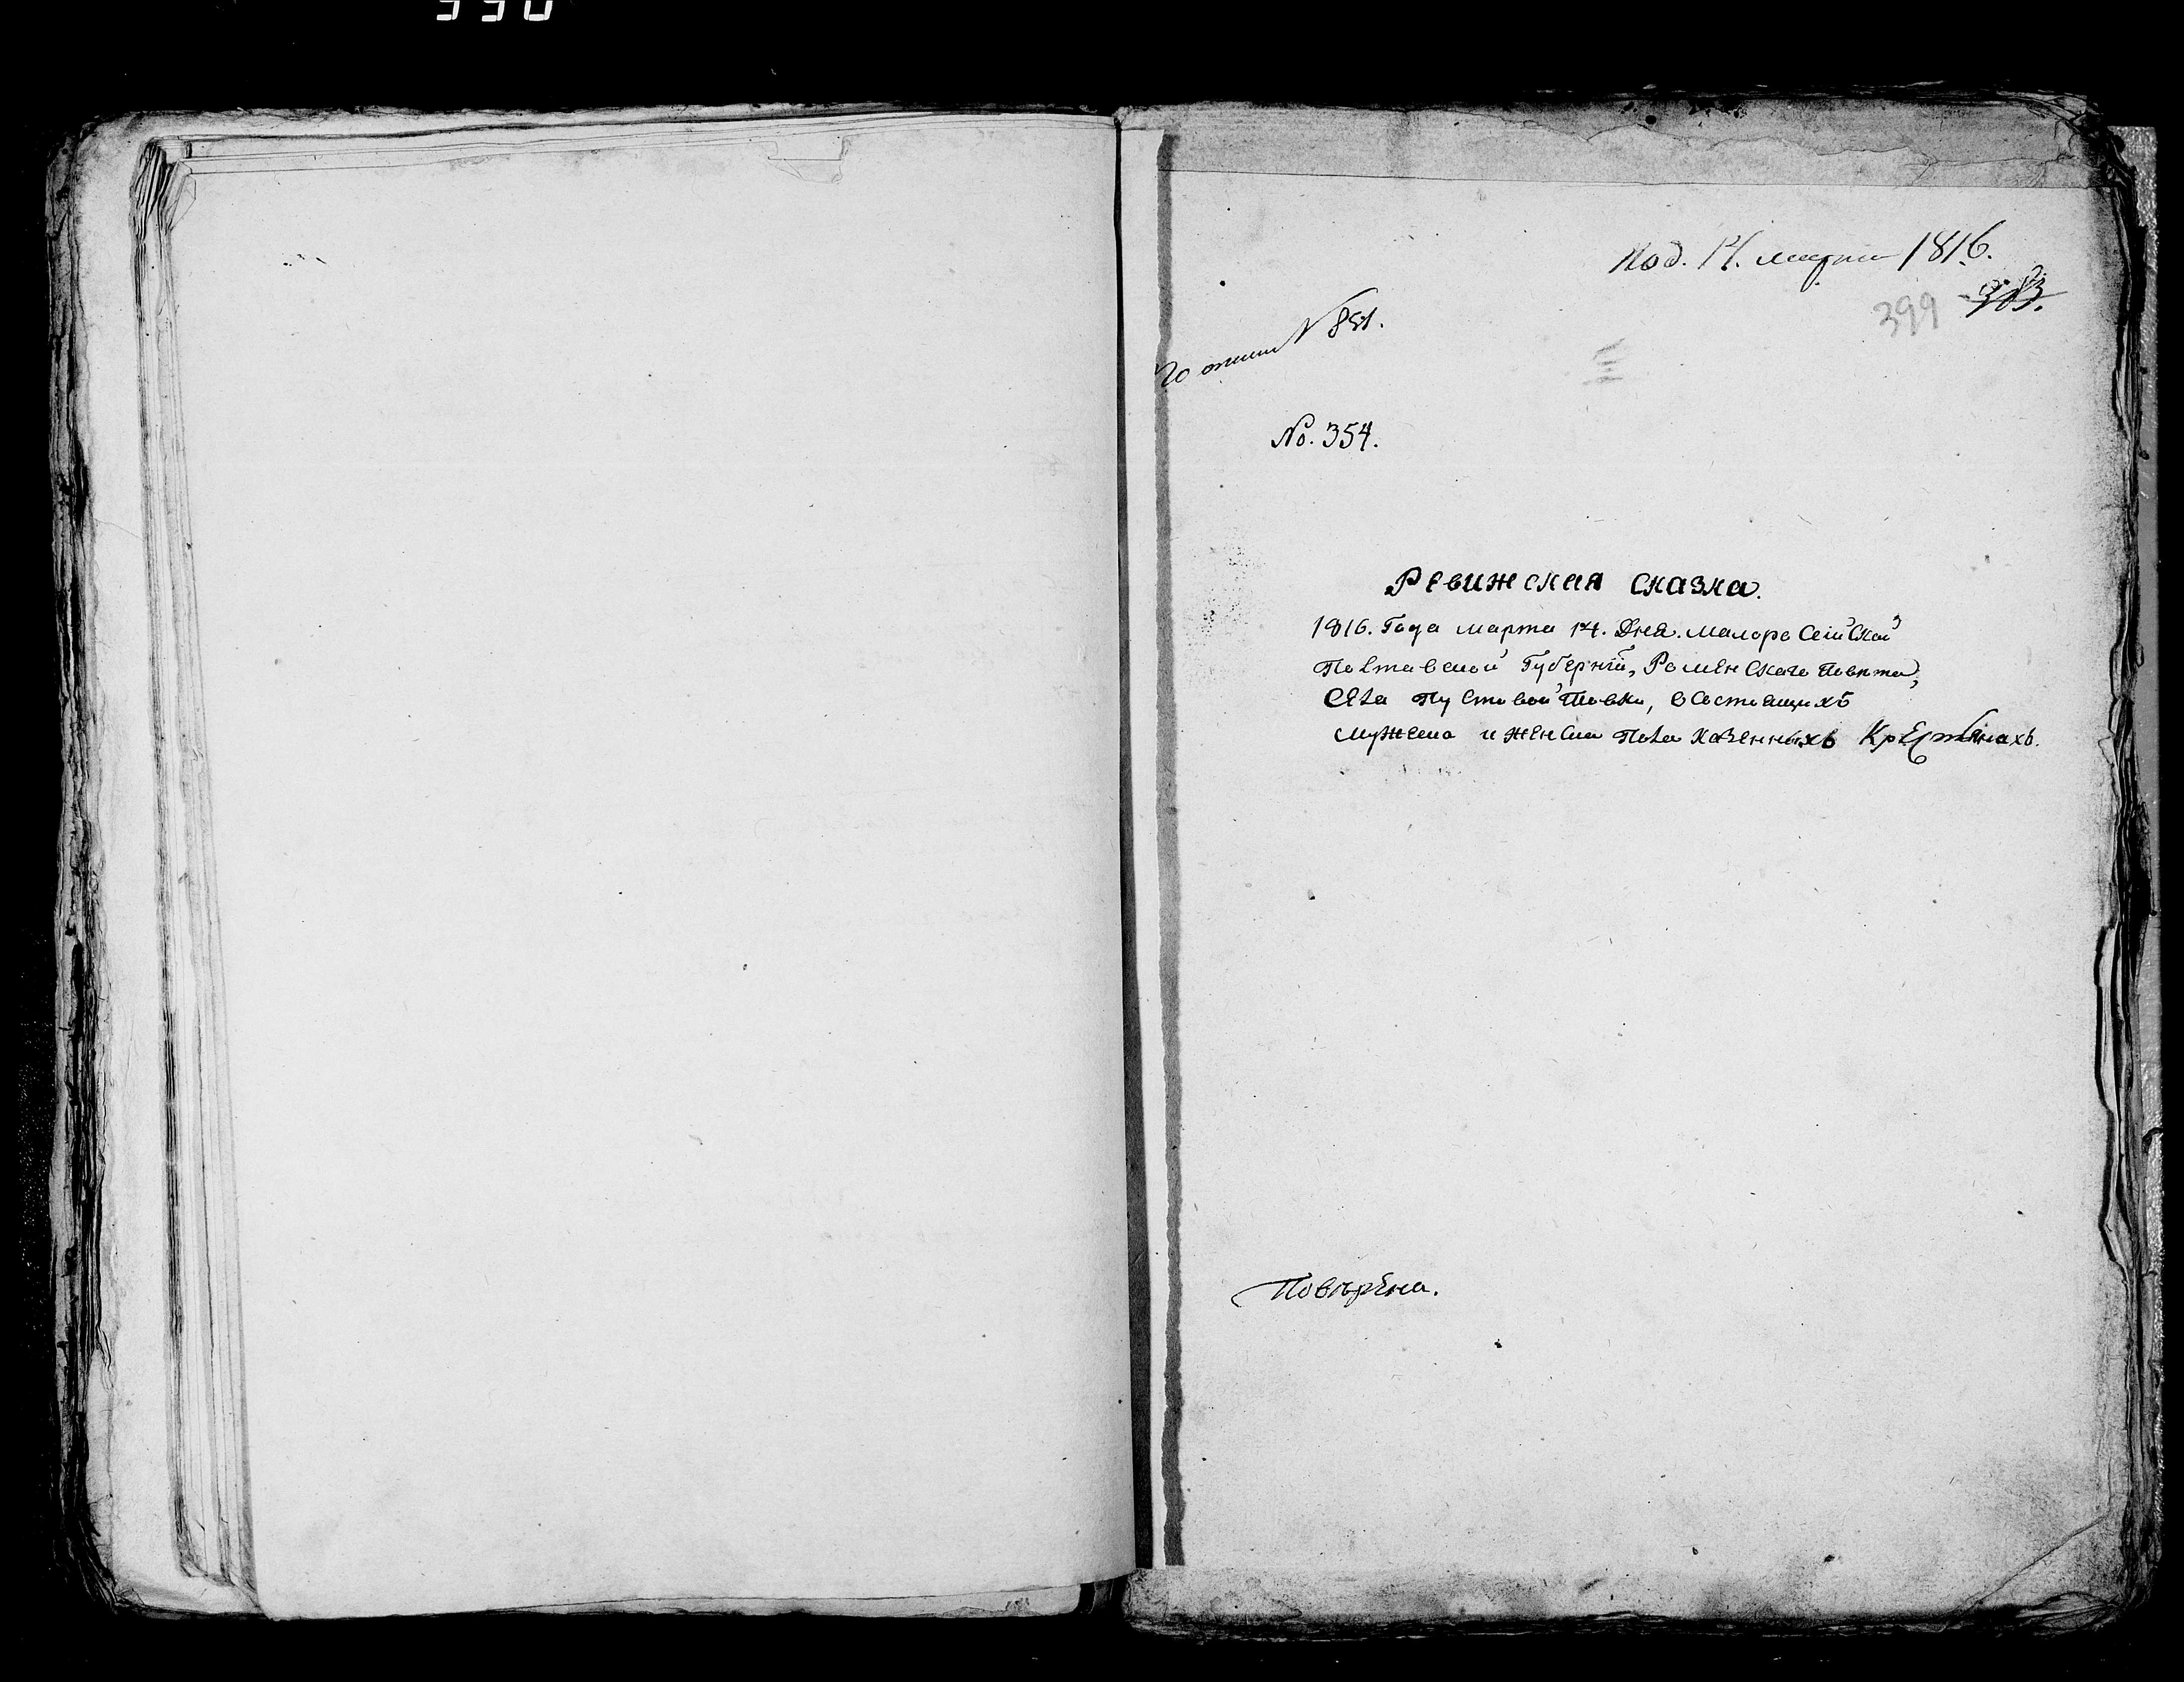 Под. 14. марта 1816.
383.
399
По описи № 851.
No. 354.
Ревижская сказка.
1816. Года марта 14. Дня. Малоросеійской
Полтавской Губерніи, Роменскаго Повета,
Села Пустовойтовки, о состоящихъ
мужска и женска пола казенныхъ Крестянахъ.
Поверена.